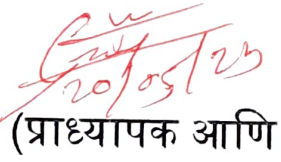 20/05/25
(प्राध्यापक आणि